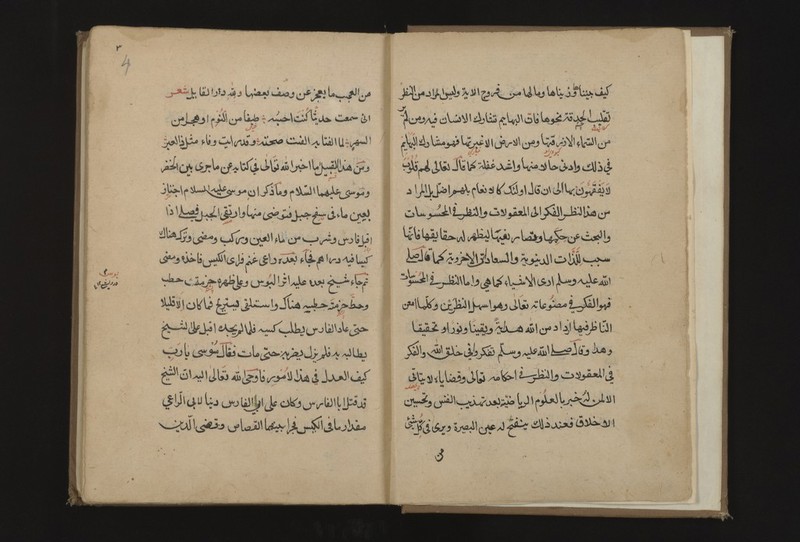 كيف بنيناها وزيناها وما لها من فروج الاية وليس المراد من النظر
تقليب الحدقة نحوها فان البهايم تشارك الانسان فيه ومن لم ير
من السماء الا زرقتها ومن الارض الا غبرتها فهو مشارك البهايم
في ذلك وادنى حالا منها واشد غفلة كما قال تعالى لهم قلوب
لا يفقهون بها الى ان قال اولئك كالانعام بل هم اضل بل المراد
من هذا النظر الفكر الى المعقولات والنظر في المحسوسات
والبحث عن حكمها وتصاريفها ليظهر له حقايقها فانها
سبب للذات الدنيوية والسعادات الاخروية كما قال صلى
الله عليه وسلم ارنى الاشياء كما هي واما النظر في المحسوسات
فهو الفكر في مصنوعاته تعالى وهو اسهل النظرين وكلما امعن
الناظر فيها ازداد من الله هداية ويقينا ونورا وتحقيقا
وهذا وقال صلى الله عليه وسلم تفكروا في خلق الله والفكر
في المعقولات والنظر في احكامه تعالى وقضاياه لا يتاتى
الا لمن له خبر بالعلوم الرياضية بعد تهذيب النفس وتحسين
الاخلاق فعند ذلك ينفتح له عين البصيرة ويرى في كل شئ
من
٣
4
من العجب ما يعجز عن وصف بعضها ولله در القايل شعر
انى سمعت حديثا كنت احسبه طيفا من النوم او هجرا من
السهر لما الفتايه الفت صحته وقد رايت وفاء مثل ذا الغير
ومن هذا القبيل ما اخبر الله تعالى في كتابه عن ما جرى بين الخضر
وموسى عليهما السلام وما ذكر ان موسى عليه السلام اجتاز
بعين ماء في سفح جبل فتوضى منها وارتقى الجبل فيصلى اذا
اقبل فارس وشرب من الماء العين وركب ومضى وترك هناك
كيسا فيه دراهم فجاء بعده راعى غنم فراى الكيس فاخذه ومضى
ثم جاء شيخ بعده عليه اثر البوس وعلى ظهره حزمة حطب
وحط حزمة حطبه هناك واستلقى ليستريح فما كان الا قليلا
حتى عاد الفارس يطلب كيسه فلما لم يجده اقبل على الشيخ
يطالبه به فلم يزل يضربه حتى مات فقال موسى يا رب
كيف العدل في هذا الامور فاوحى الله تعالى اليه ان الشيخ
قد قتل ابا الفارس وكان على ابى الفارس دينا لابى الراعى
مقدار ما في الكيس فجرى بينهما القصاص وقضى الدين